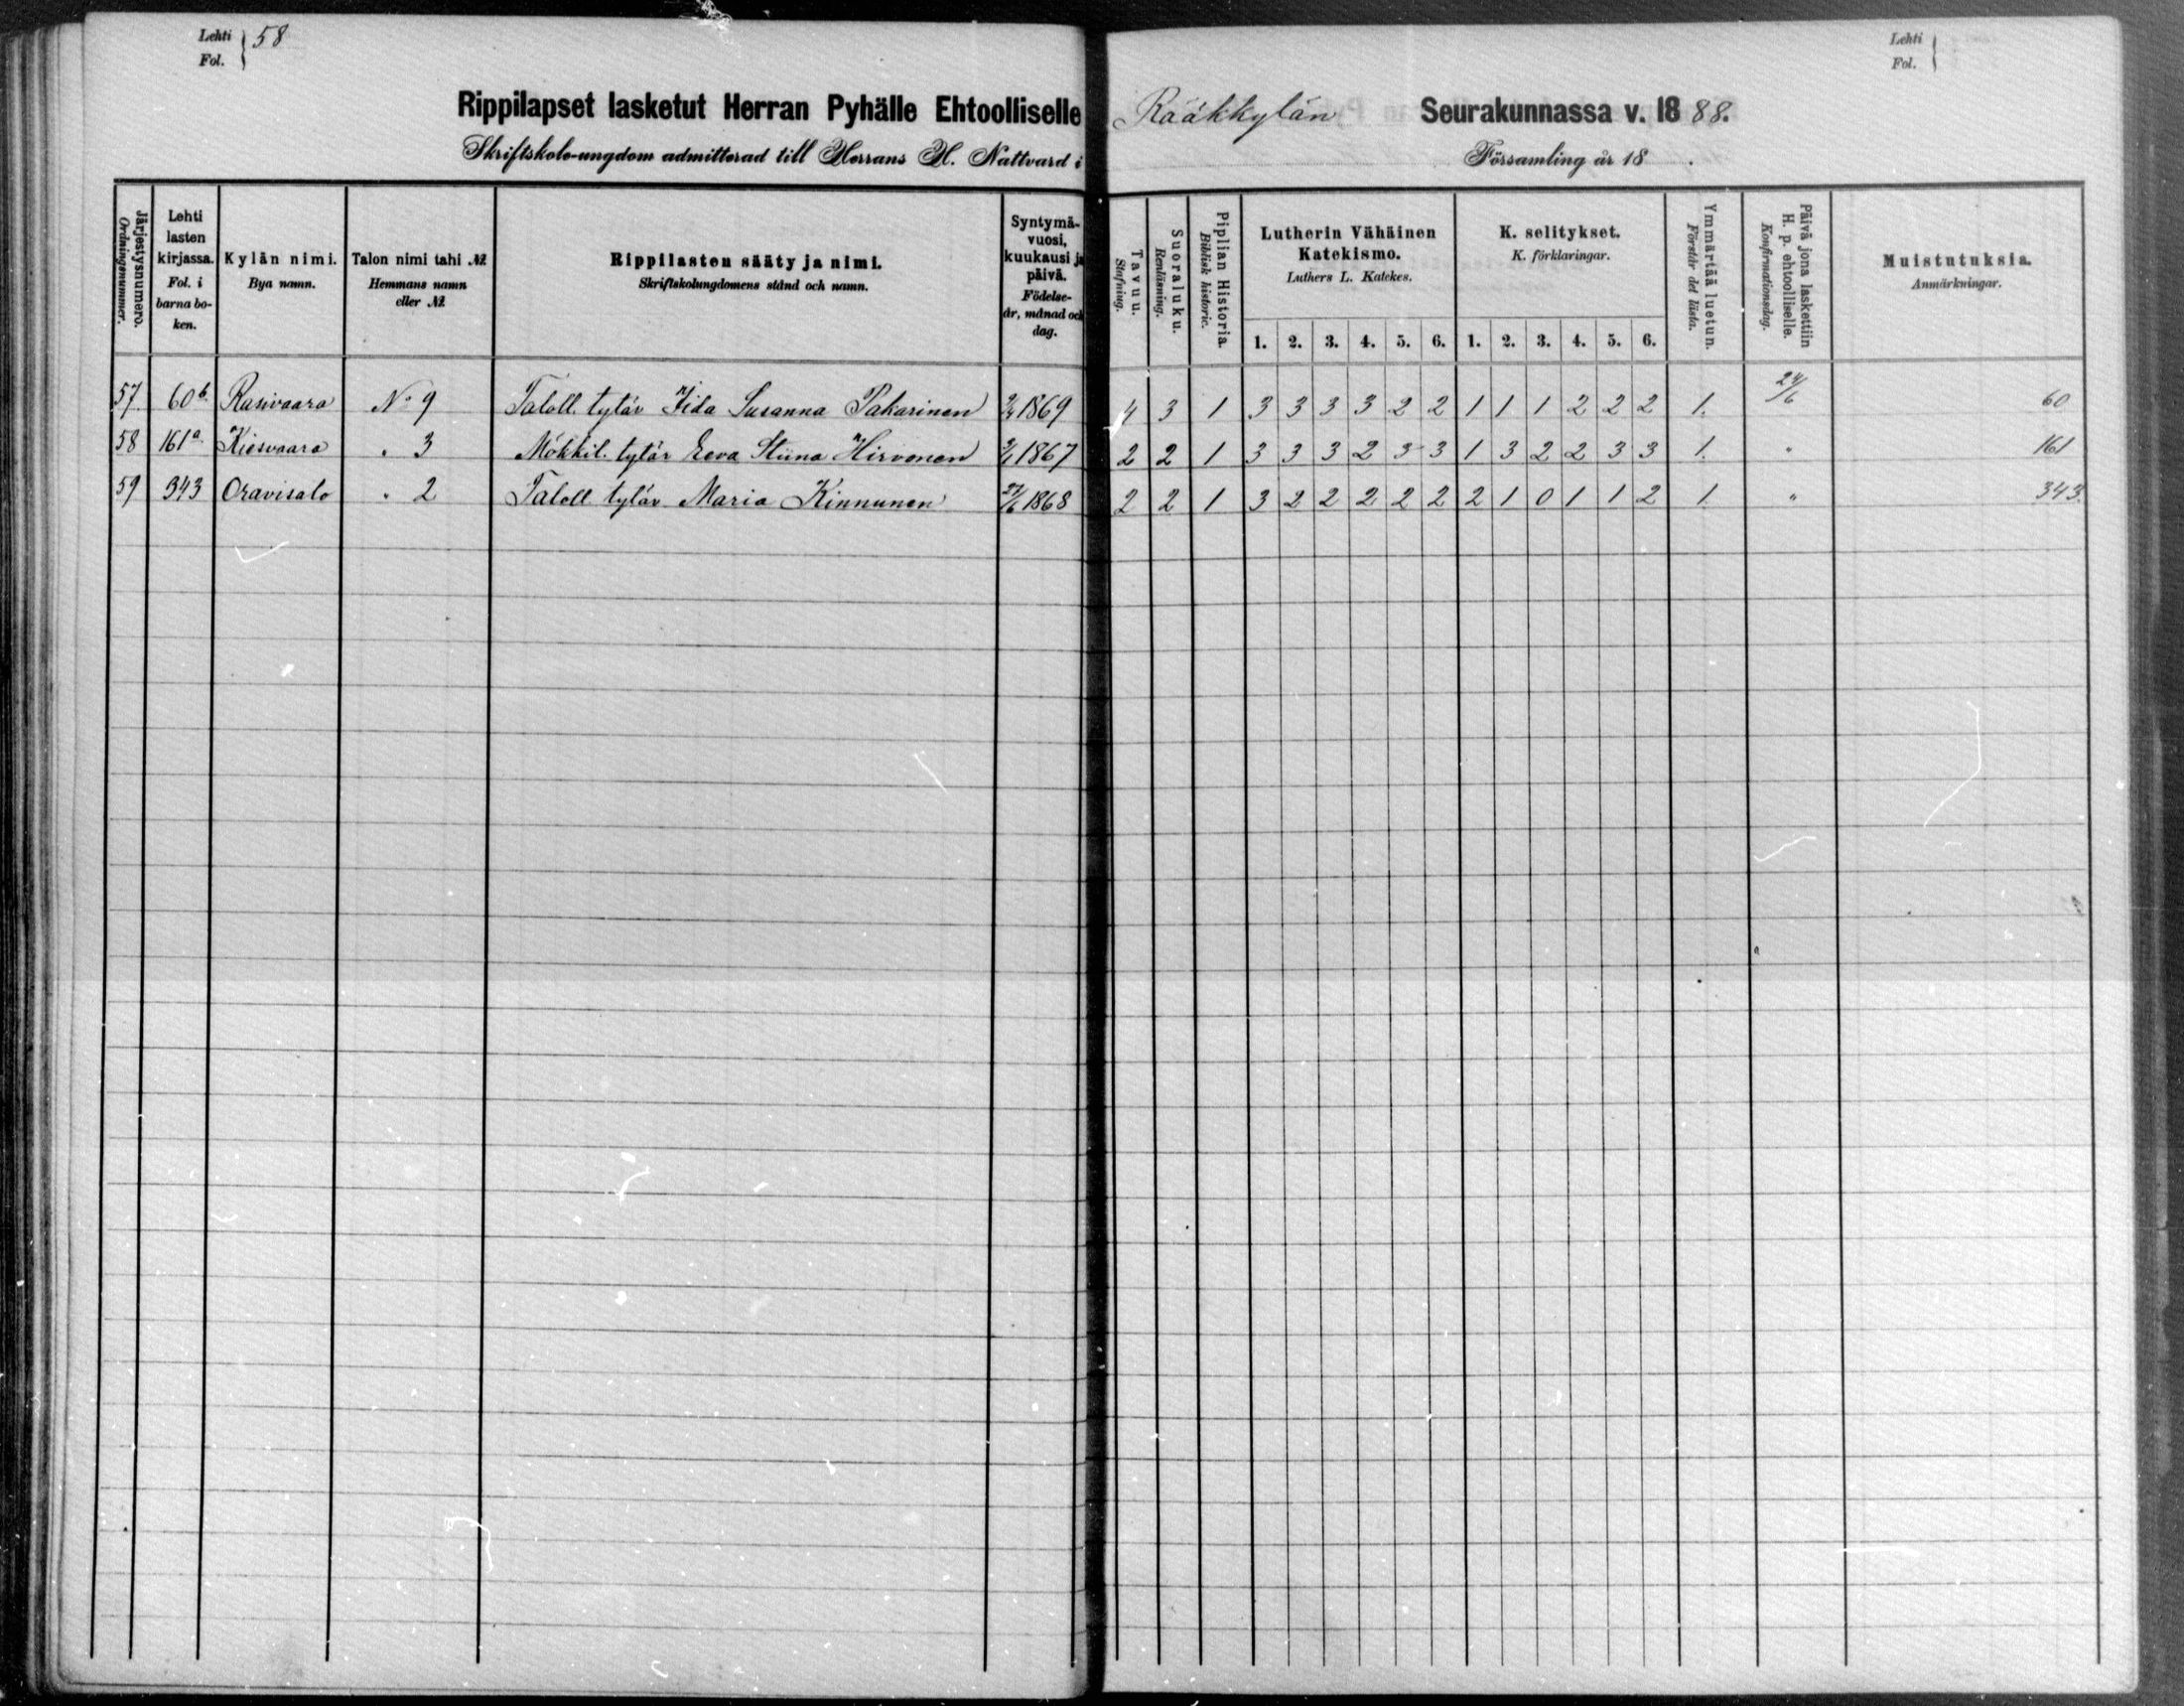 Lehti
Fol. } 58
Lehti
Fol. }
Rippilapset lasketut Herran Pyhälle Ehtoolliselle Rääkkylän Seurakunnassa v. 1888.
Skriftskole-ungdom admitterad till Herrans H. Nattvard i Församling år 18 .
Järjestysnumero. Ordningsnummer.
Lehti lasten kirjassa. Fol. i barna boken.
Kylän nimi. Bya namn.
Talon nimi tahi № Hemmans namn eller №
Rippilasten sääty ja nimi. Skriftskolungdomens stånd och namn.
Syntymävuosi, kuukausi ja päivä. Födelseår, månad och dag.
Tavuu. Stafning.
Suoraluku. Renläsning.
Piplian Historia. Biblisk historie.
Lutherin Vähäinen Katekismo. Luthers L. Katekes.
1. 2. 3. 4. 5. 6.
K. selitykset. K. förklaringar.
1. 2. 3. 4. 5. 6.
Ymmärtää luetun. Förstår det lästa.
Päivä jona laskettiin H. p. ehtoolliselle. Konfirmationsdag.
Muistutuksia. Anmärkningar.
57. 60b. Rasivaara No 9 Taloll. tytär Iida Susanna Pakarinen 1869 4 3 1 3 3 3 3 2 2 1 1 1 2 2 2 1. 24/6 60
58 161a. Kiesvaara " 3 Mökkil. tytär Eeva Stiina Hirvonen 1867 2 2 1 3 3 3 2 3 3 1 3 2 2 3 3 1. " 161
59 343 Oravisalo " 2 Taloll tytär Maria Kinnunen 27/6 1868 2 2 1 3 2 2 2 2 2 2 1 0 1 1 2 1. " 343.